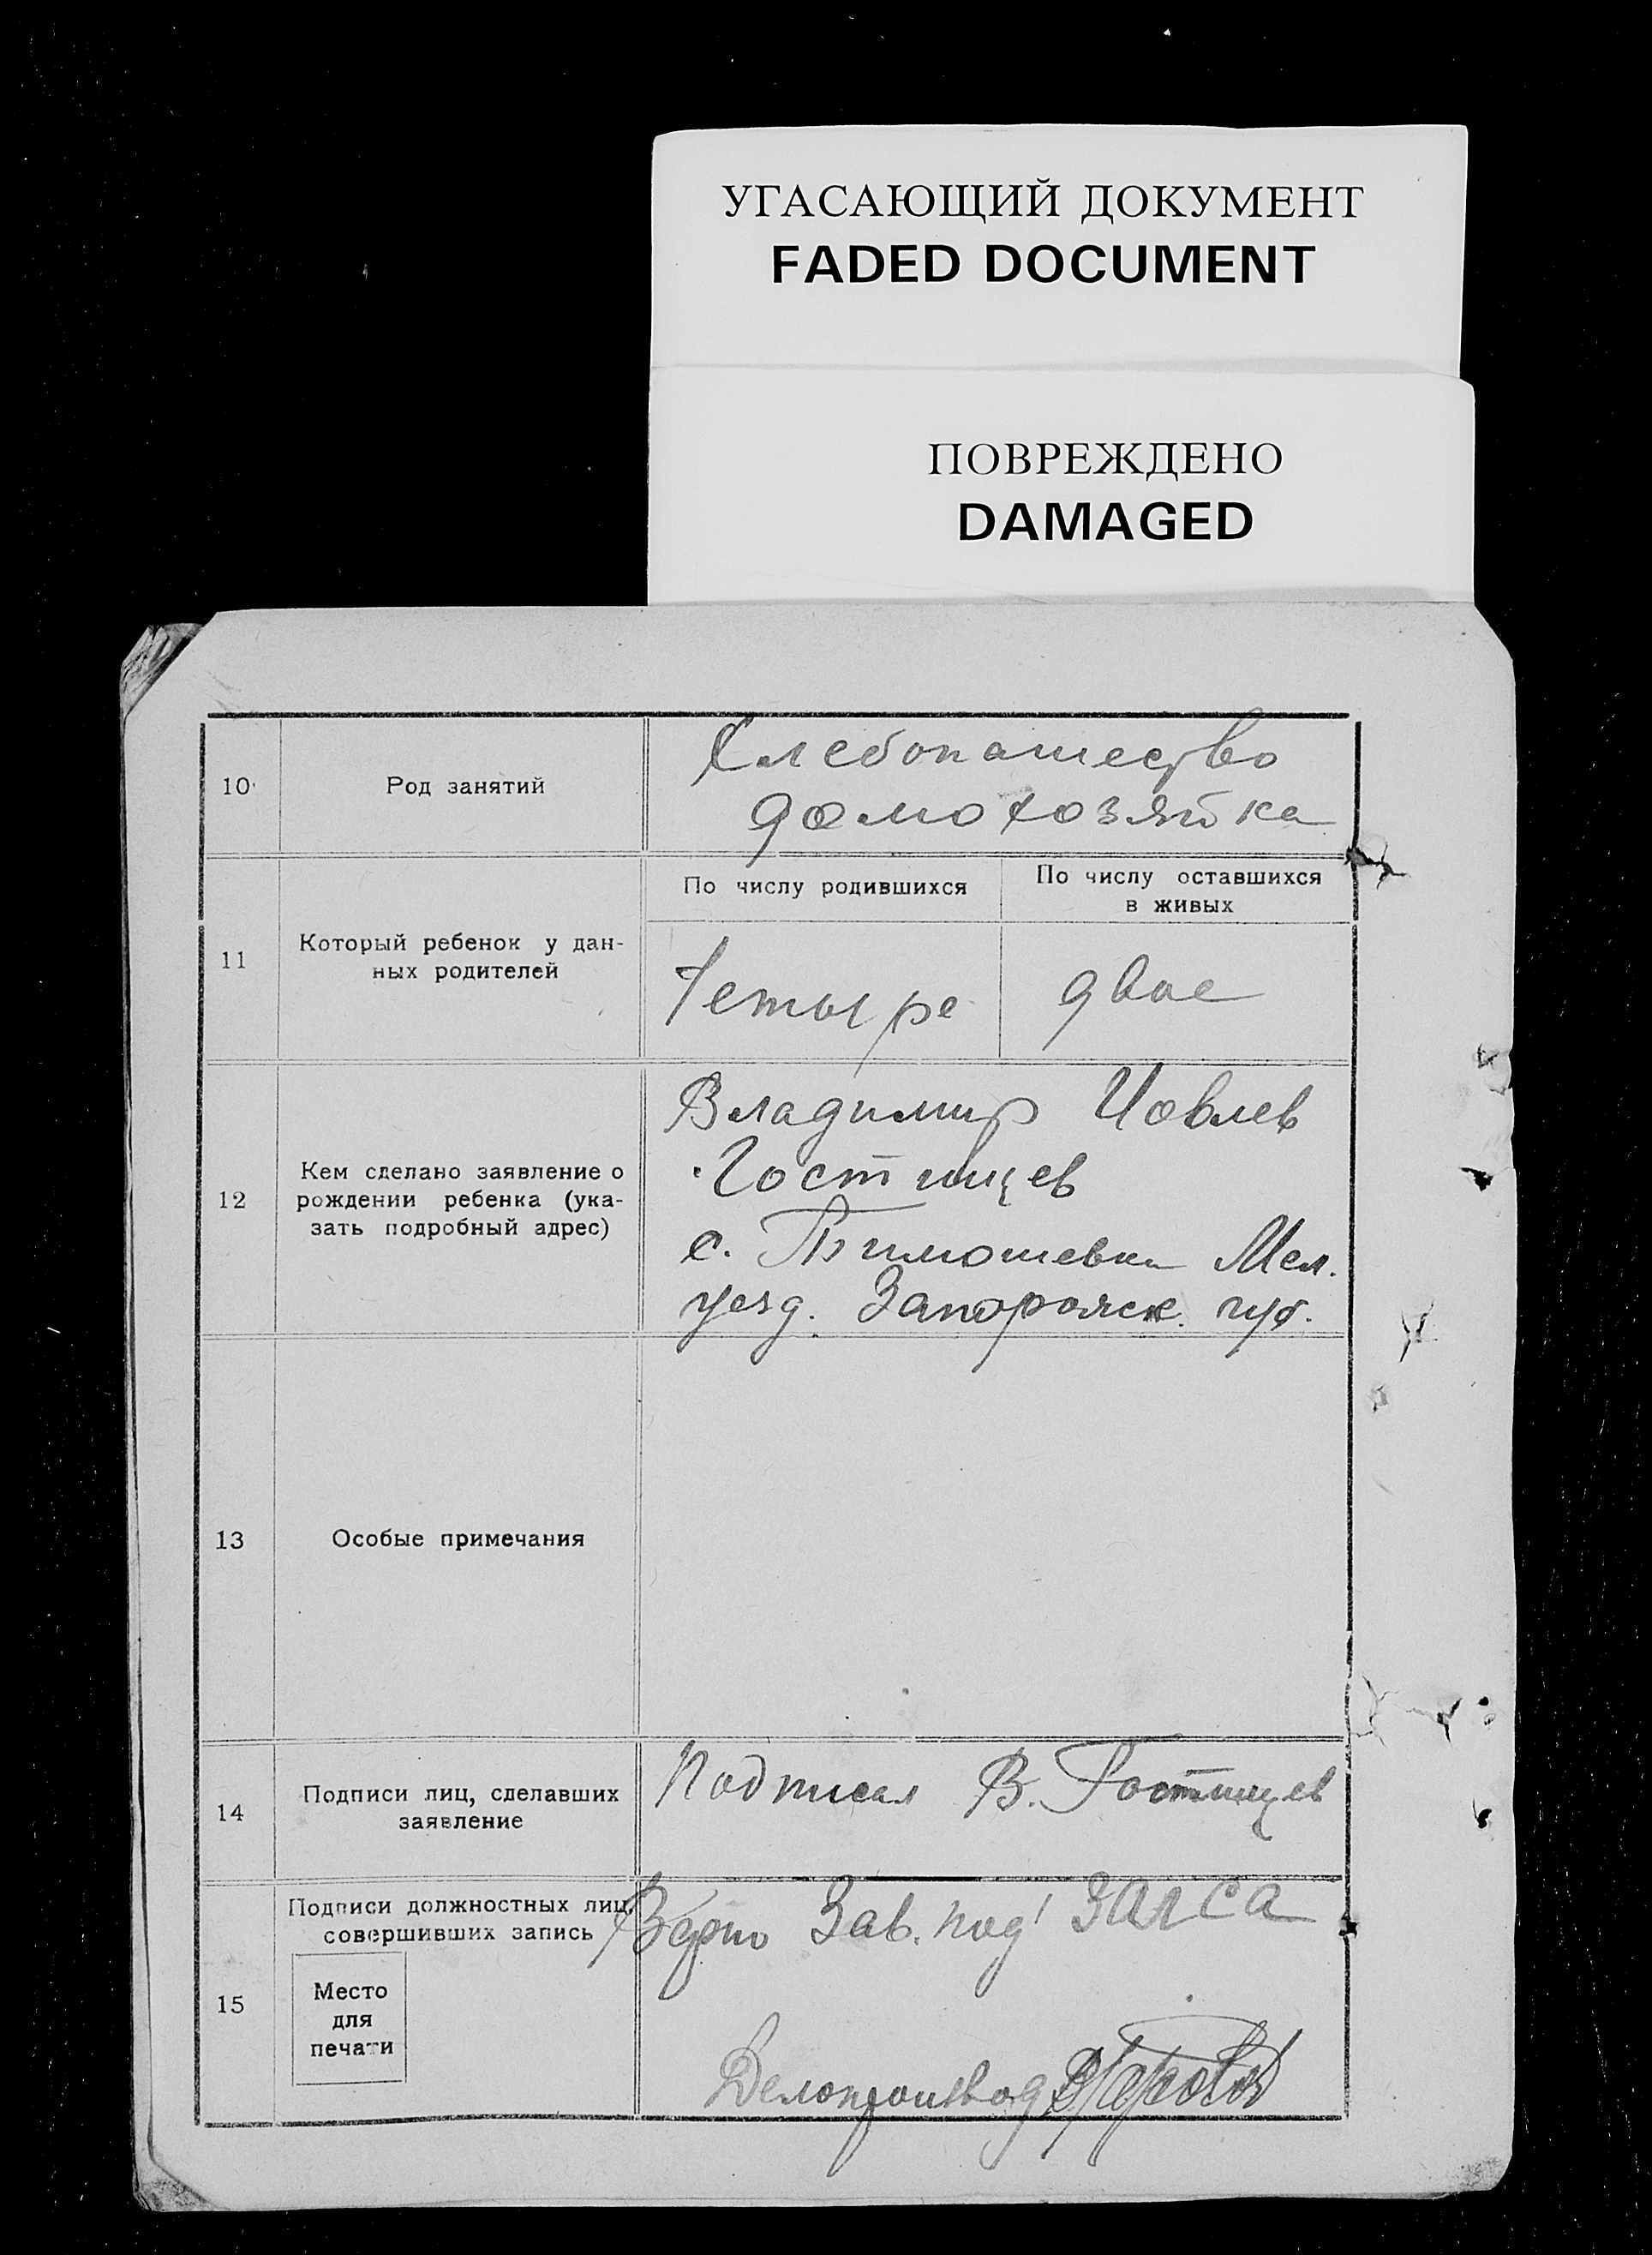 УГАСАЮЩИЙ ДОКУМЕНТ
FADED DOCUMENT
ПОВРЕЖДЕНО
DAMAGED
10
Род занятий
Хлебопашество
домохозяйка
11
Который ребенок у дан-
ных родителей
По числу родившихся
Четыре
По числу оставшихся
в живых
двое
12
Кем сделано заявление о
рождении ребенка (ука-
зать подробный адрес)
Владимир Иовлев
Гостищев
с. Тимошевка Мел.
уезд. Запорожск. губ.
13
Особые примечания
14
Подписи лиц, сделавших
заявление
Подписал В. Гостищев
15
Подписи должностных лиц,
совершивших запись
Место
для
печати
Верно Зав. под ЗАГСА
Делопроизвод